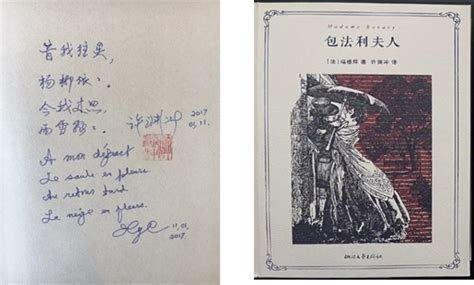 昔我往矣,
杨柳依:。
今我来思,
雨雪霏:。
许渊冲
2017
01.11.
A mon départ
Le saule en pleurs
Au retour tard
La neige en fleurs.
XYC
11,01,
2017
Madame Bovary
包法利夫人
[法] 福楼拜 著 许渊冲 译
浙江文艺出版社